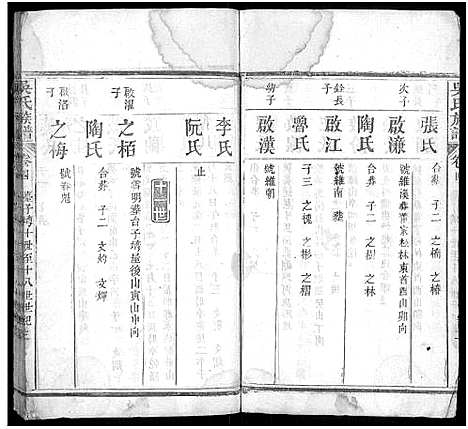 吳氏族譜
卷四
張氏
合葬 子二 之楠 之椿
次子
啟濂
號維溪葬蕭家松林東首酉山卯向
陶氏
合葬 子二 之樹 之林
長子
啟江
號維南 葬
魯氏
子三 之槐 之彬 之楷
幼子
啟漢
號維朝
李氏
阮氏
止
啟濯子
之栢
號雪明葬台子塆屋後山寅山申向
陶氏
合葬 子二 文灼 文煇
啟洛子
之梅
號春魁
吳氏族譜
卷四
台子塆十世至十八世世紀